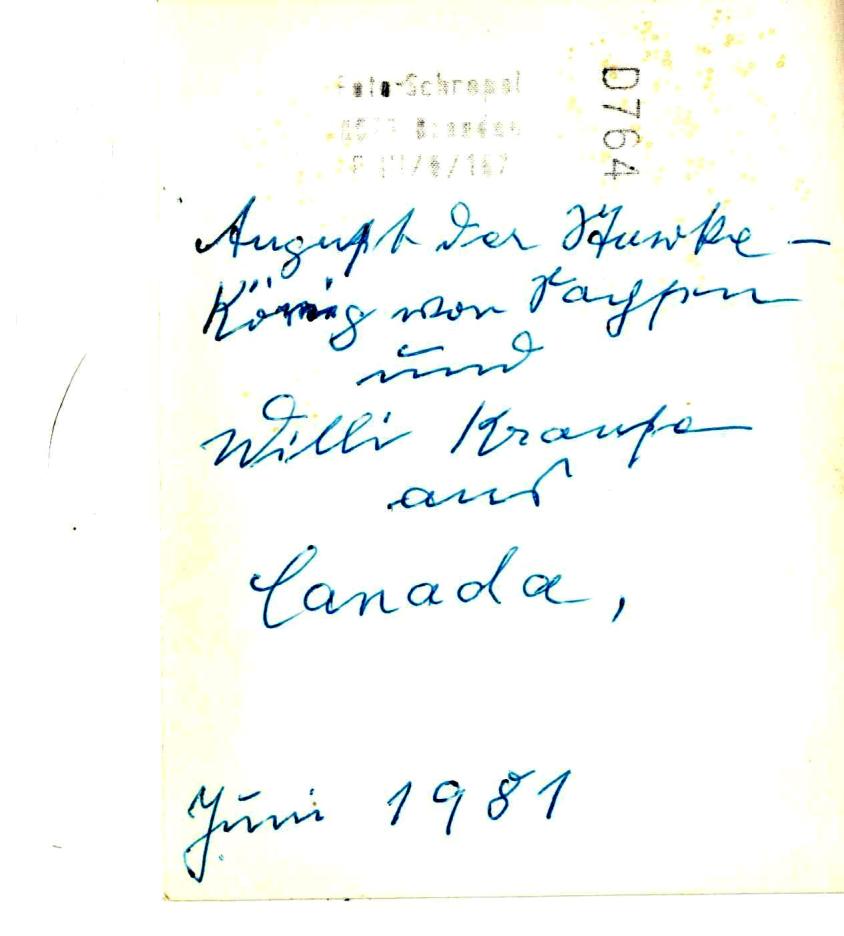 Foto-Schrapel
Dresden
D764
August der Starke –
König von Sachsen
und
Willi Krause
aus
Canada,
Juni 1981